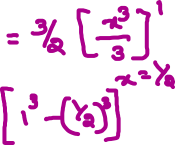 = 3/2 [x³/3]¹
x = y₂
[1³ - (y₂)³]